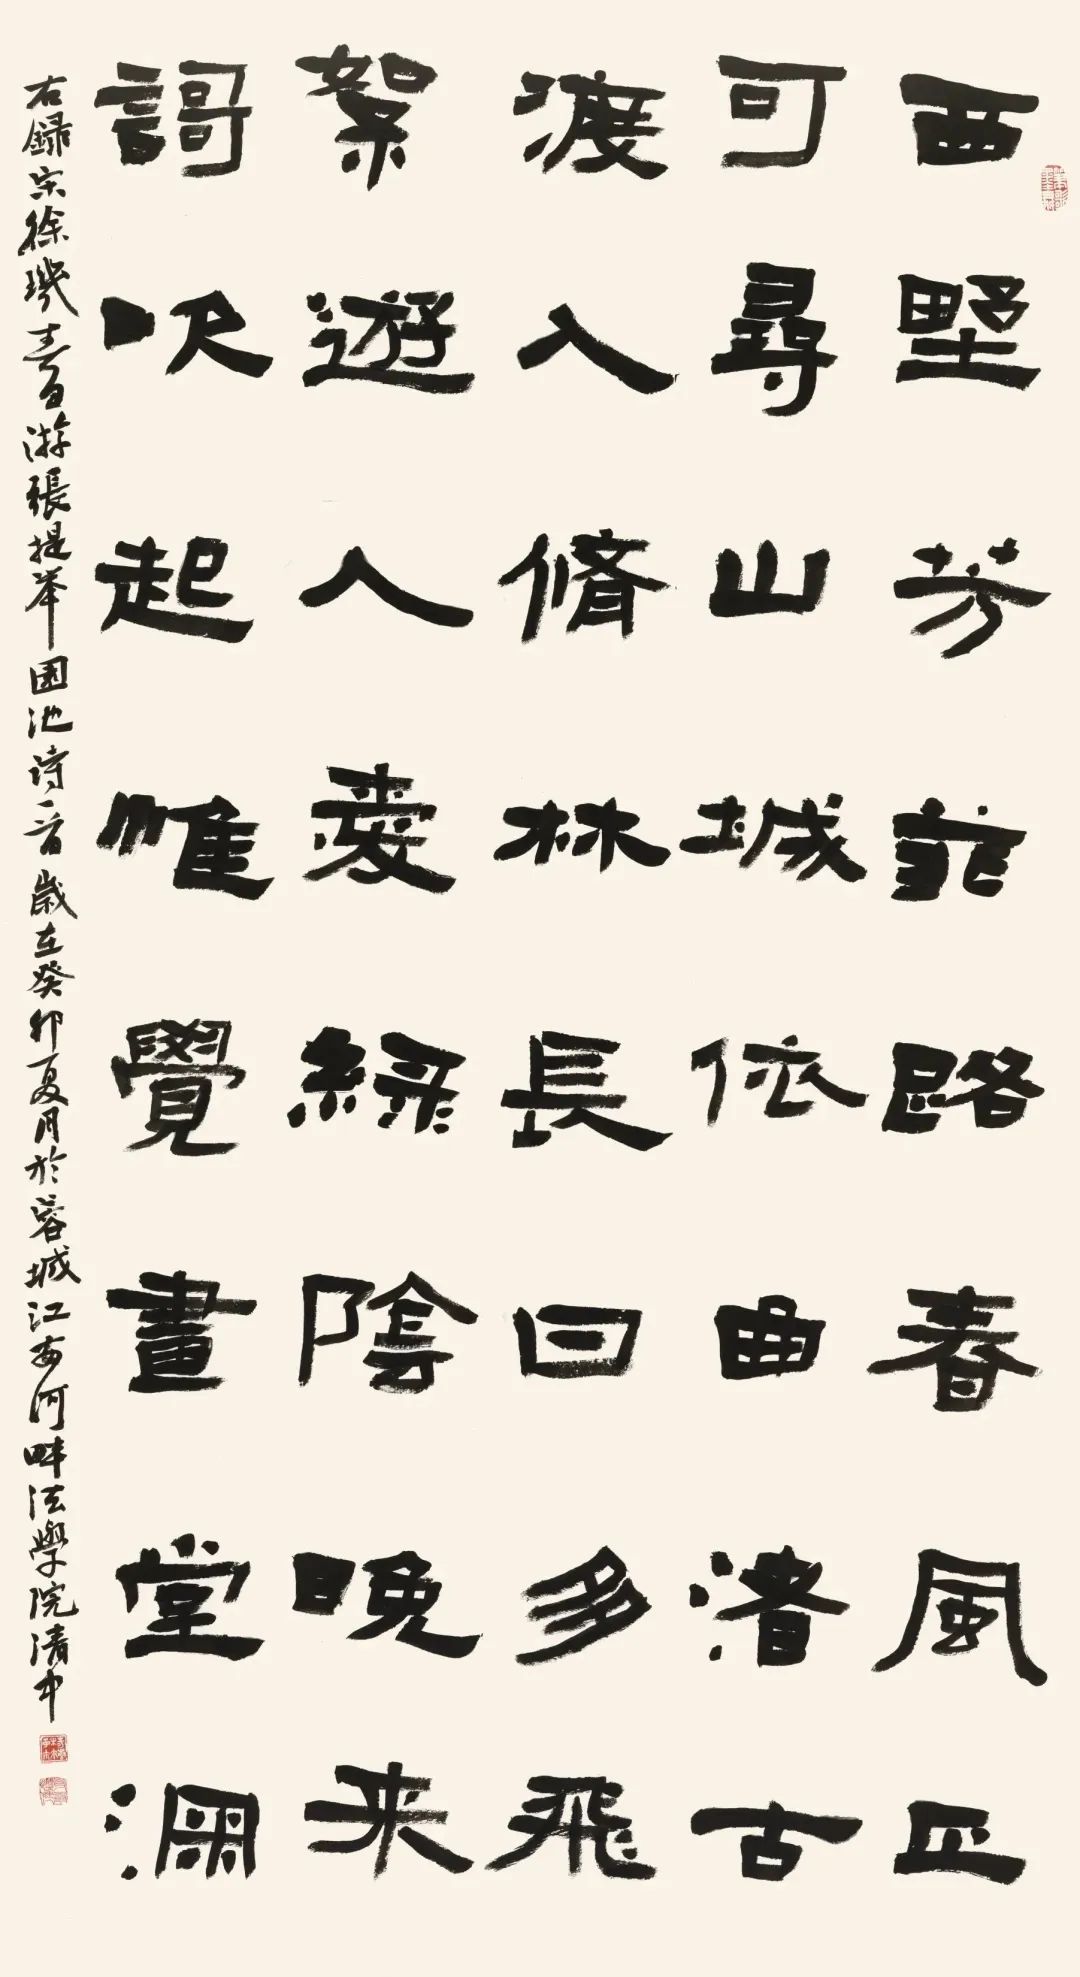 西墅芳菲路春風正
可尋山城依曲渚古
渡入脩林長日多飛
絮遊人愛綠陰晚来
謌吹起惟覺畫堂深
右録宋徐璣春日游張提举園池诗一首歲在癸卯夏月於蓉城江安河畔法學院清中